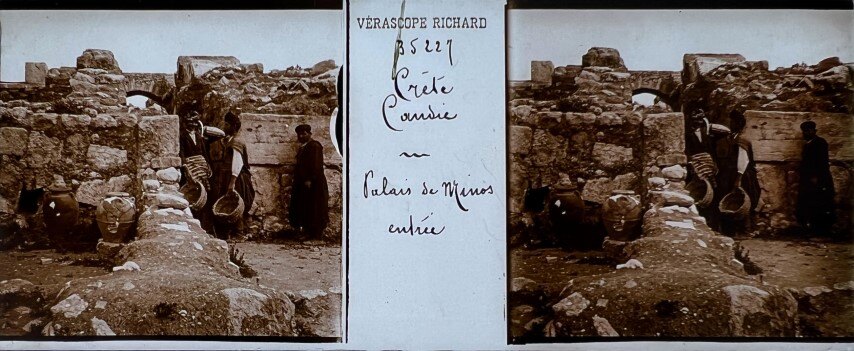 VÉRASCOPE RICHARD
35227
Crète
Candie
Palais de Minos
entrée